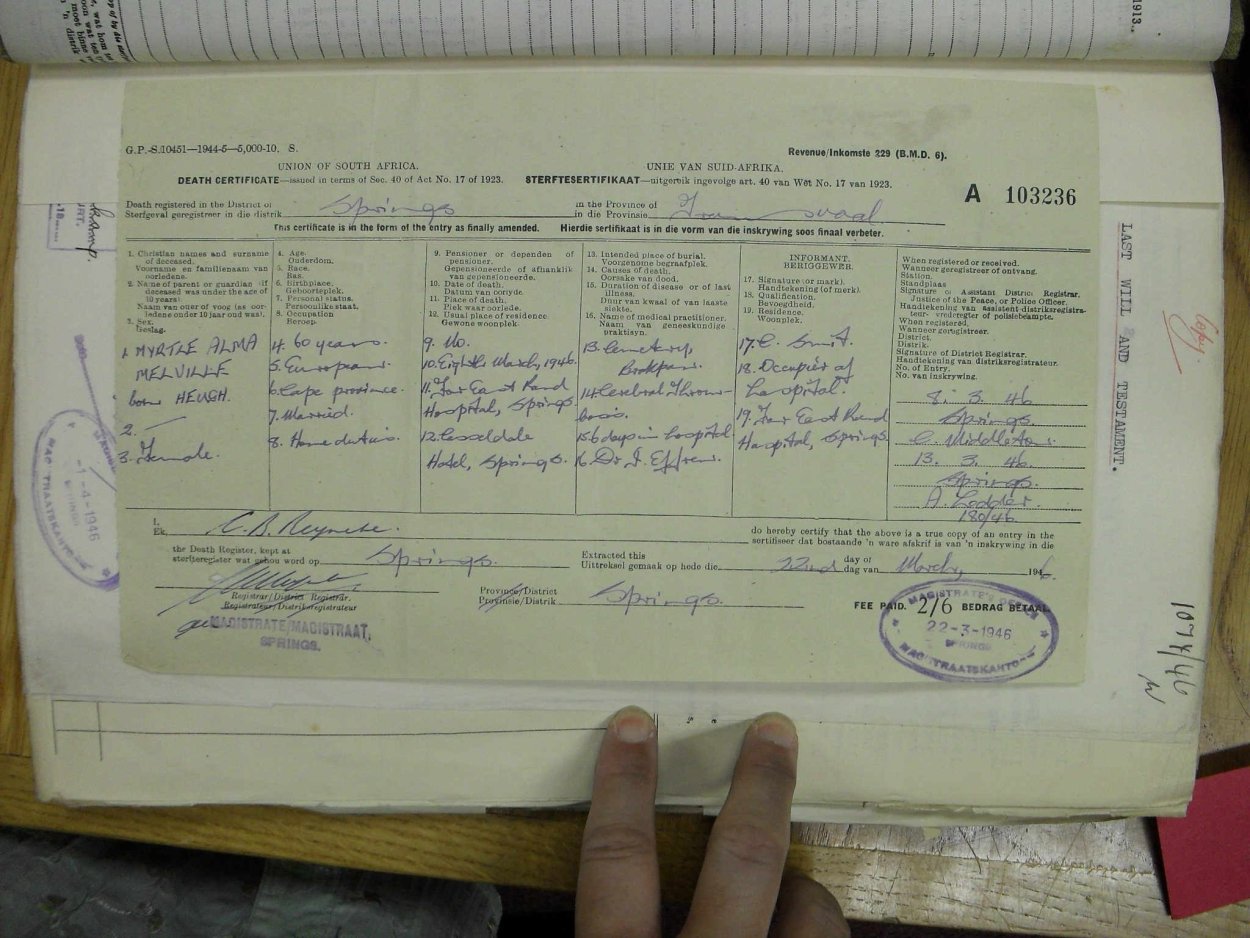 1913.
G.P.-S.10451—1944-5—5,000-10. S.
Revenue/Inkomste 229 (B.M.D. 6).
UNION OF SOUTH AFRICA.
UNIE VAN SUID-AFRIKA.
DEATH CERTIFICATE—issued in terms of Sec. 40 of Act No. 17 of 1923.
STERFTESERTIFIKAAT—uitgereik ingevolge art. 40 van Wet No. 17 van 1923.
A 103236
Death registered in the District of
Sterfgeval geregistreer in die distrik Springs
in the Province of
in die Provinsie Transvaal
This certificate is in the form of the entry as finally amended. Hierdie sertifikaat is in die vorm van die inskrywing soos finaal verbeter.
1. Christian names and surname
of deceased.
Voorname en familienaam van
oorledene.
2. Name of parent or guardian (if
deceased was under the age of
10 years)
Naam van ouer of voog (as oor-
ledene onder 10 jaar oud was).
3. Sex.
Geslag.
1. MYRTLE ALMA
MELVILLE
born HEUGH.
2. —
3. Female.
4. Age.
Ouderdom.
5. Race.
Ras.
6. Birthplace.
Geboorteplek.
7. Personal status.
Persoonlike staat.
8. Occupation
Beroep.
4. 60 years.
5. European.
6. Cape province.
7. Married.
8. Home duties.
9. Pensioner or dependent of
pensioner.
Gepensioneerde of afhanklik
van gepensioneerde.
10. Date of death.
Datum van oorlyde.
11. Place of death.
Plek waar oorlede.
12. Usual place of residence.
Gewone woonplek.
9. No.
10. Eighth March, 1946.
11. Far East Rand
Hospital, Springs
12. Casseldale
Hotel, Springs.
13. Intended place of burial.
Voorgenome begraafplek.
14. Causes of death.
Oorsake van dood.
15. Duration of disease or of last
illness.
Duur van kwaal of van laaste
siekte.
16. Name of medical practitioner.
Naam van geneeskundige
praktisyn.
13. Cemetery,
Brakpan.
14. Cerebral Throm-
bosis.
15. 6 days in hospital
16. Dr. I. Effren.
INFORMANT.
BERIGGEWER.
17. Signature (or mark).
Handtekening (of merk).
18. Qualification.
Bevoegdheid.
19. Residence.
Woonplek.
17. C. Smit.
18. Occupier of
hospital.
19. Far East Rand
Hospital, Springs.
When registered or received.
Wanneer geregistreer of ontvang.
Station.
Standplaas
Signature of Assistant District Registrar,
Justice of the Peace, or Police Officer.
Handtekening van assistent-distriksregistra-
teur- vrederegter of polisiebeampte.
When registered,
Wanneer geregistreer.
District,
Distrik.
Signature of District Registrar.
Handtekening van distriksregistrateur.
No. of Entry.
No. van inskrywing.
8. 3. 46
Springs
C. Middleton.
13. 3. 46.
Springs.
A. Lodder.
180/46
I,
Ek, C. B. Reyneke.
do hereby certify that the above is a true copy of an entry in the
sertifiseer dat bostaande 'n ware afskrif is van 'n inskrywing in die
the Death Register, kept at
sterfteregister wat gehou word op Springs.
Extracted this
Uittreksel gemaak op hede die 22nd
day of
dag van March, 1946.
Registrar/District Registrar.
Registrateur/Distriksregistrateur
Province/District
Provinsie/Distrik Springs.
FEE PAID. 2/6 BEDRAG BETAAL.
MAGISTRATE/MAGISTRAAT,
SPRINGS.
MAGISTRATE'S OFFICE
22-3-1946
SPRINGS
MAGISTRAATSKANTOOR
-1-4-1946
SPRINGS
MAGISTRAATSKANTOOR
LAST WILL AND TESTAMENT.
Copy.
1074/46